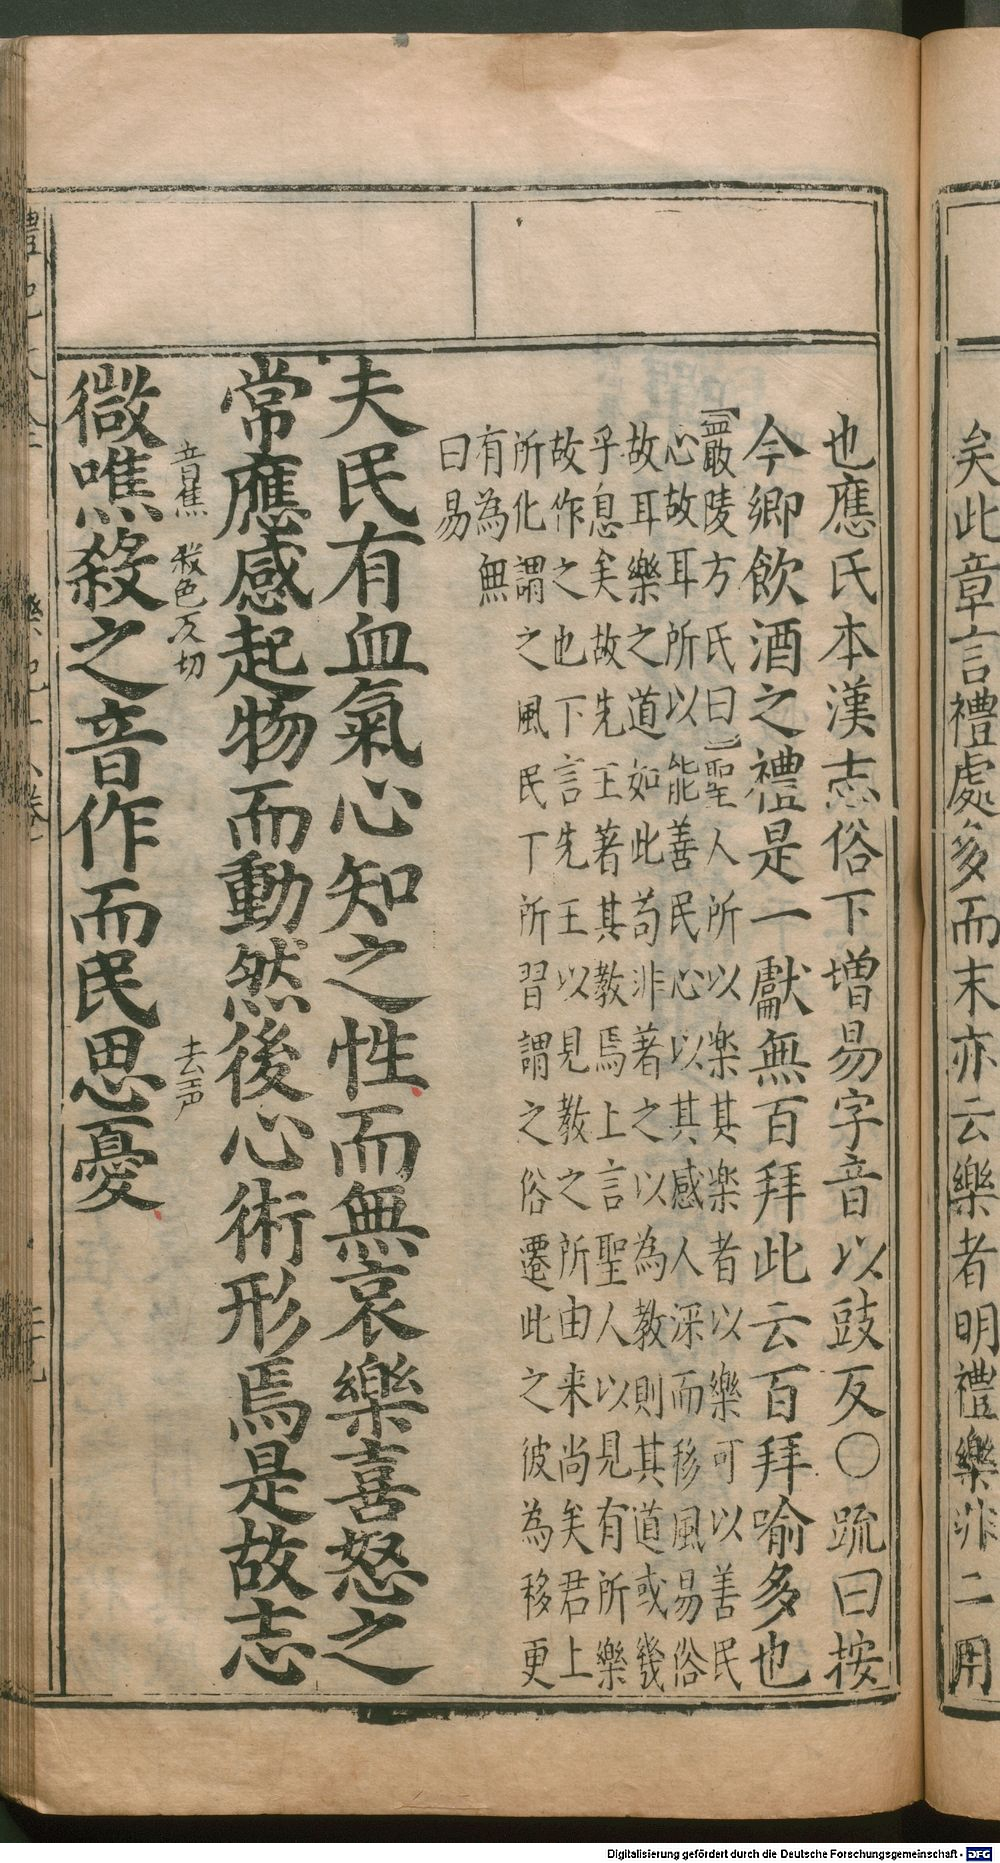 矣此章言禮處多而末亦云樂者明禮樂非二用
也應氏本漢志俗下增易字音以豉反〇疏曰按
今鄉飲酒之禮是一獻無百拜此云百拜喻多也
【嚴陵方氏曰】聖人所以楽其楽者以樂可以善民
心故耳所以能善民心以其感人深而移風易俗
故耳樂之道如此苟非著之以為教則其道或幾
乎息矣故先王著其教焉上言聖人以見有所樂
故作之也下言先王以見教之所由来尚矣君上
所化謂之風民丁所習謂之俗遷此之彼為移更
有為無
曰易
夫民有血氣心知之性而無哀樂喜怒之
常應感起物而動然後心術形焉是故志
音焦 殺色反切 去声
微噍殺之音作而民思憂
Digitalisierung gefördert durch die Deutsche Forschungsgemeinschaft - DFG